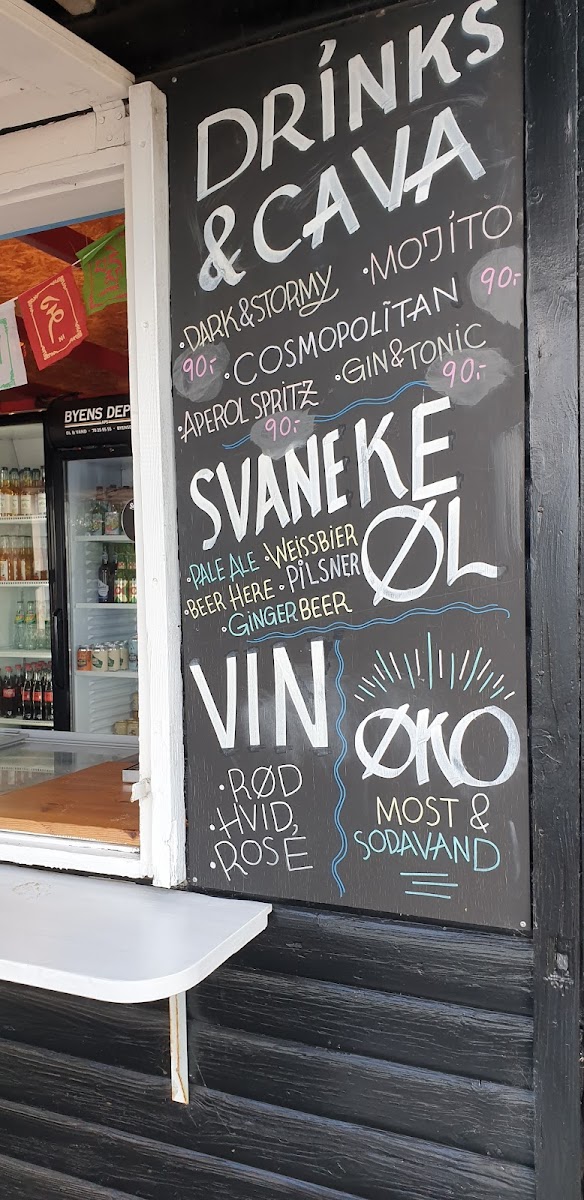 DRINKS
& CAVA
·DARK & STORMY ·MOJITO
90,- ·COSMOPOLITAN 90,-
·APEROL SPRITZ ·GIN & TONIC
90,- 90,-
SVANEKE
ØL
·PALE ALE ·WEISSBIER
·BEER HERE ·PILSNER
·GINGER BEER
VIN
·RØD
·HVID
·ROSÉ
ØKO
MOST &
SODAVAND
BYENS DEP